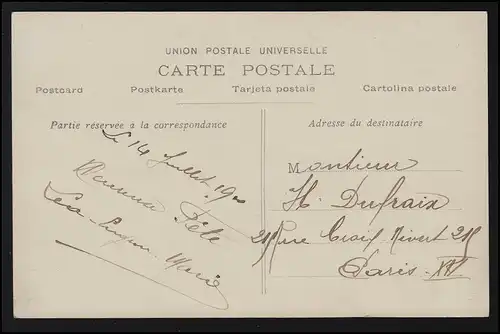 UNION POSTALE UNIVERSELLE
CARTE POSTALE
Postcard Postkarte Tarjeta postale Cartolina postale
Partie réservée à la correspondance
Adresse du destinataire
Le 14 Juillet 19
Heureuse Fête
Marie
Monsieur
H. Dufraix
211 Rue Croix Nivert 211
Paris. XV